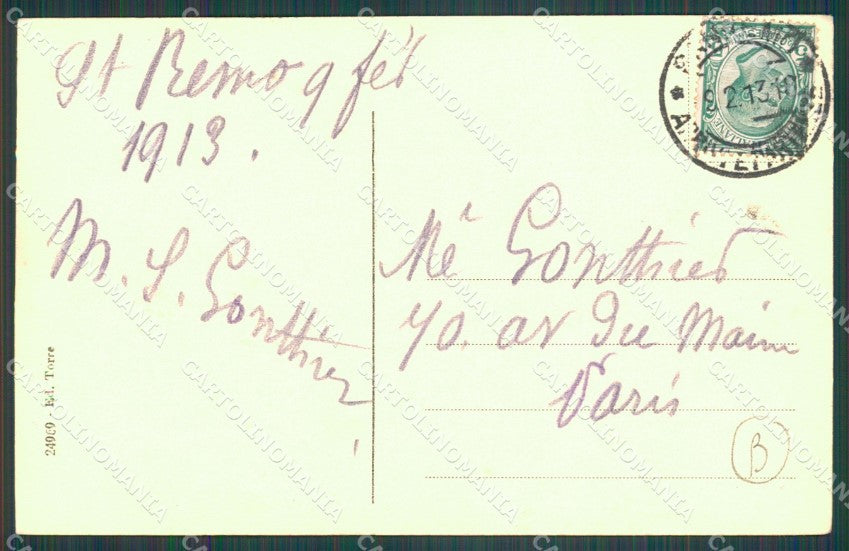 St Remo 9 fév
1913.
M. S. Gonthier
Mé Gonthier
70. av du Maine
Paris
B
24969 - Ed. Torre
9.2.13.19
CARTOLINOMANIA